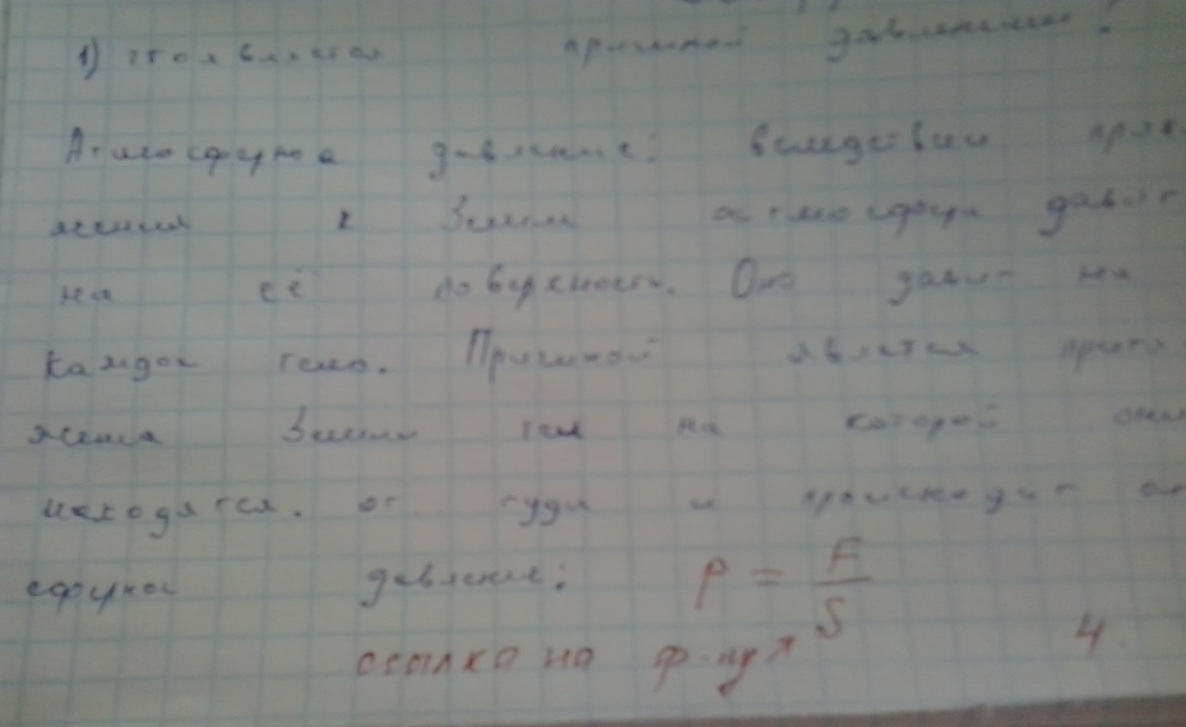 1) что является причиной давления?
Атмосферное давление: вследствии притя
жения к Земле атмосфера давит
на её поверхность. Она давит на
каждое тело. Причиной явлется притя
жения Земли тел на которой они
находятся. от туда и происходит
сферное давление: P = F/S
ссылка на ф-лу 4.